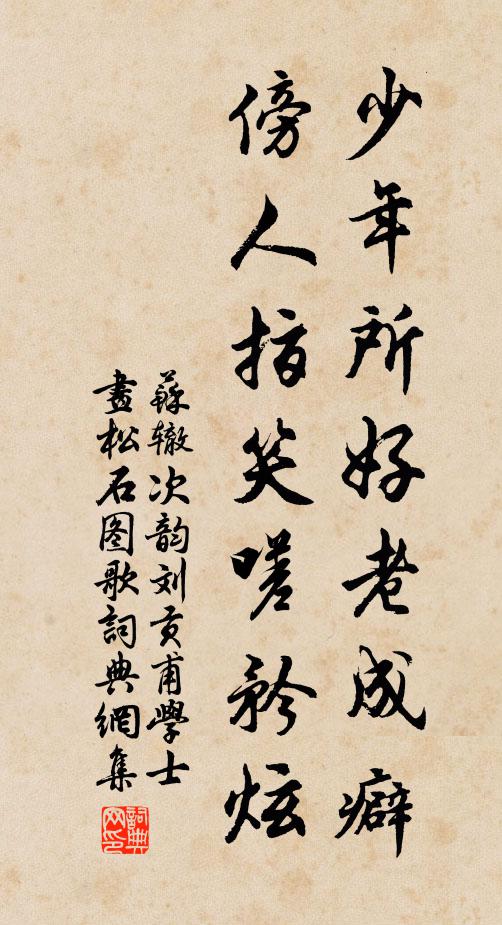 少年所好老成癖
傍人指笑嗟矜炫
蘇辙次韵刘贡甫學士
畫松石图歌詞典網集
詞典网印